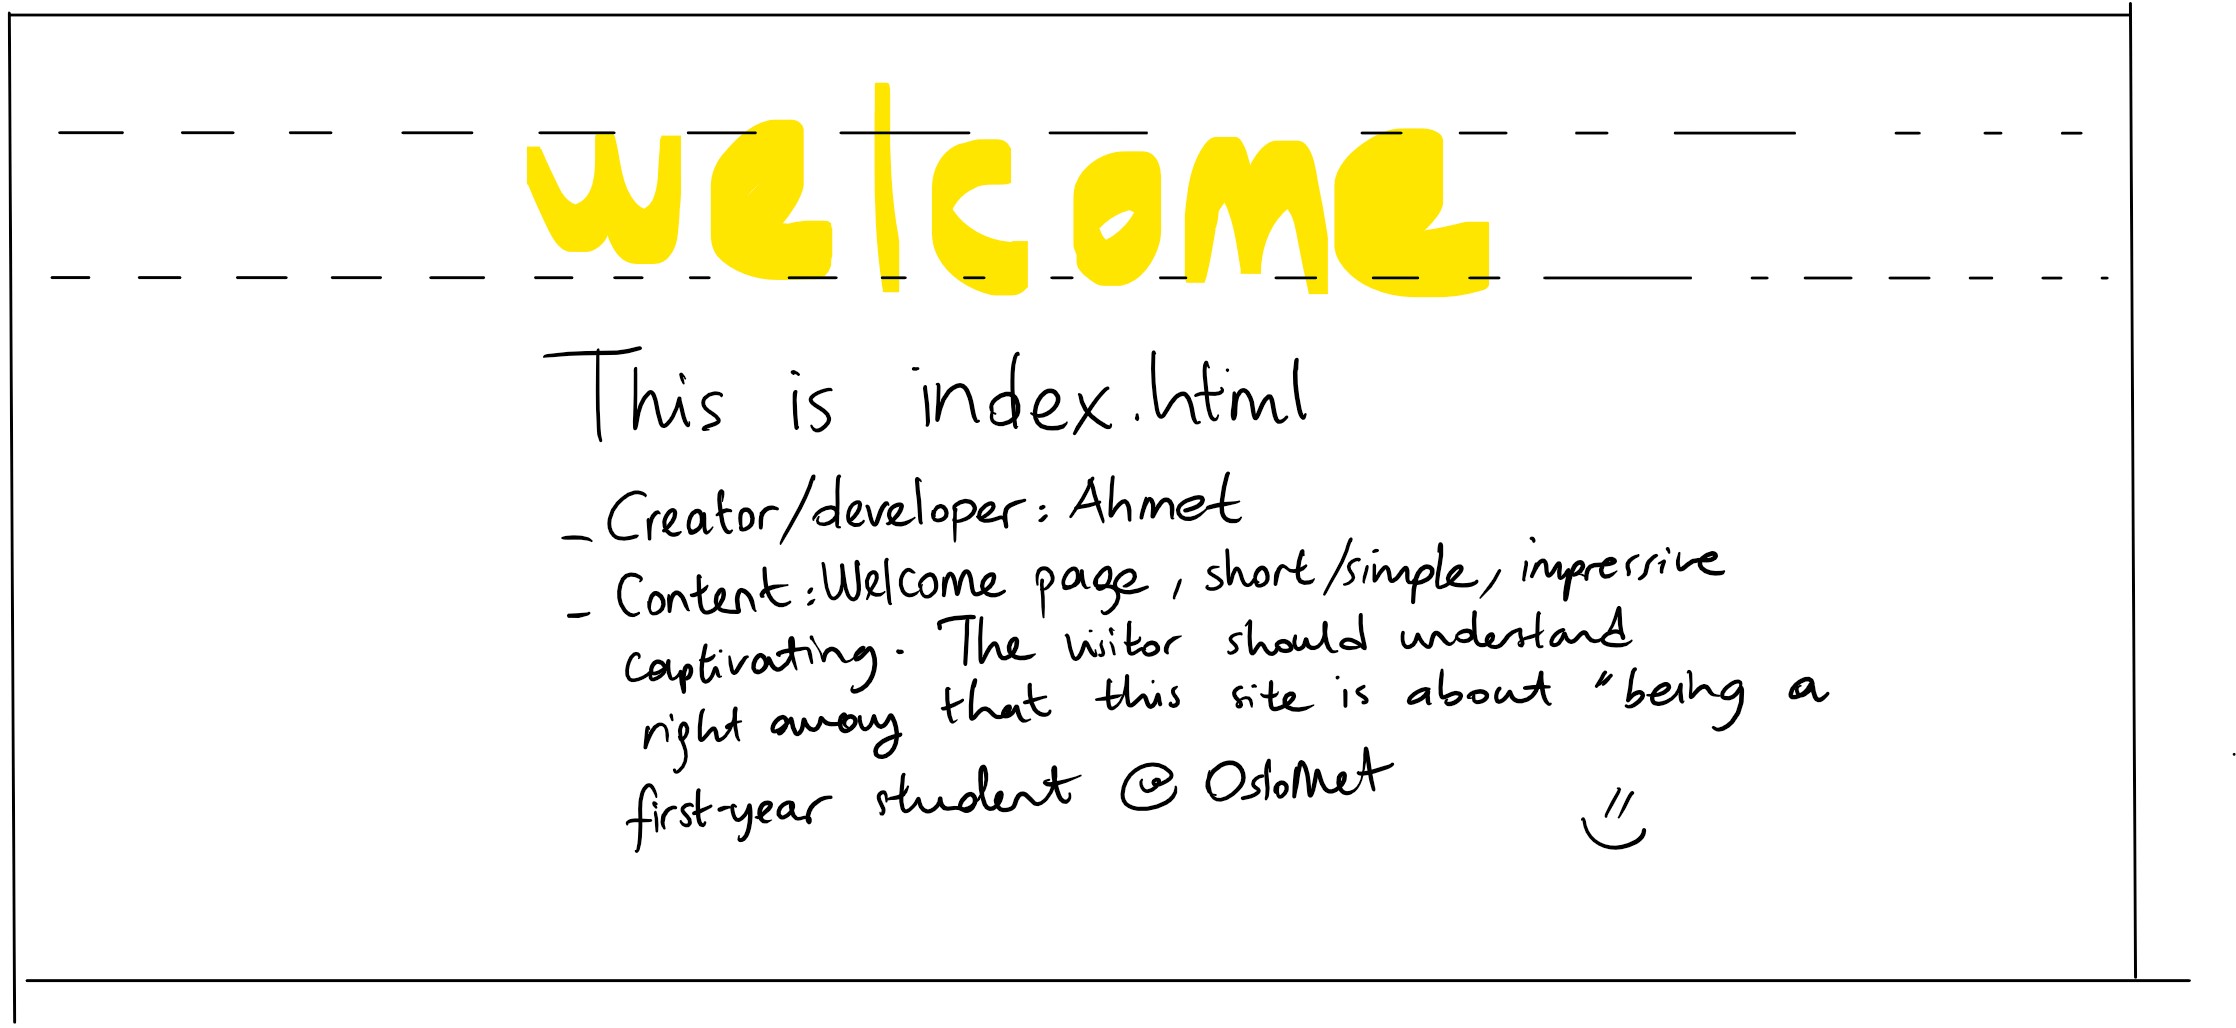 welcome
This is index.html
- Creator/developer: Ahmet
- Content: Welcome page, short/simple, impressive
captivating. The visitor should understand
right away that this site is about "being a
first-year student @ OsloMet